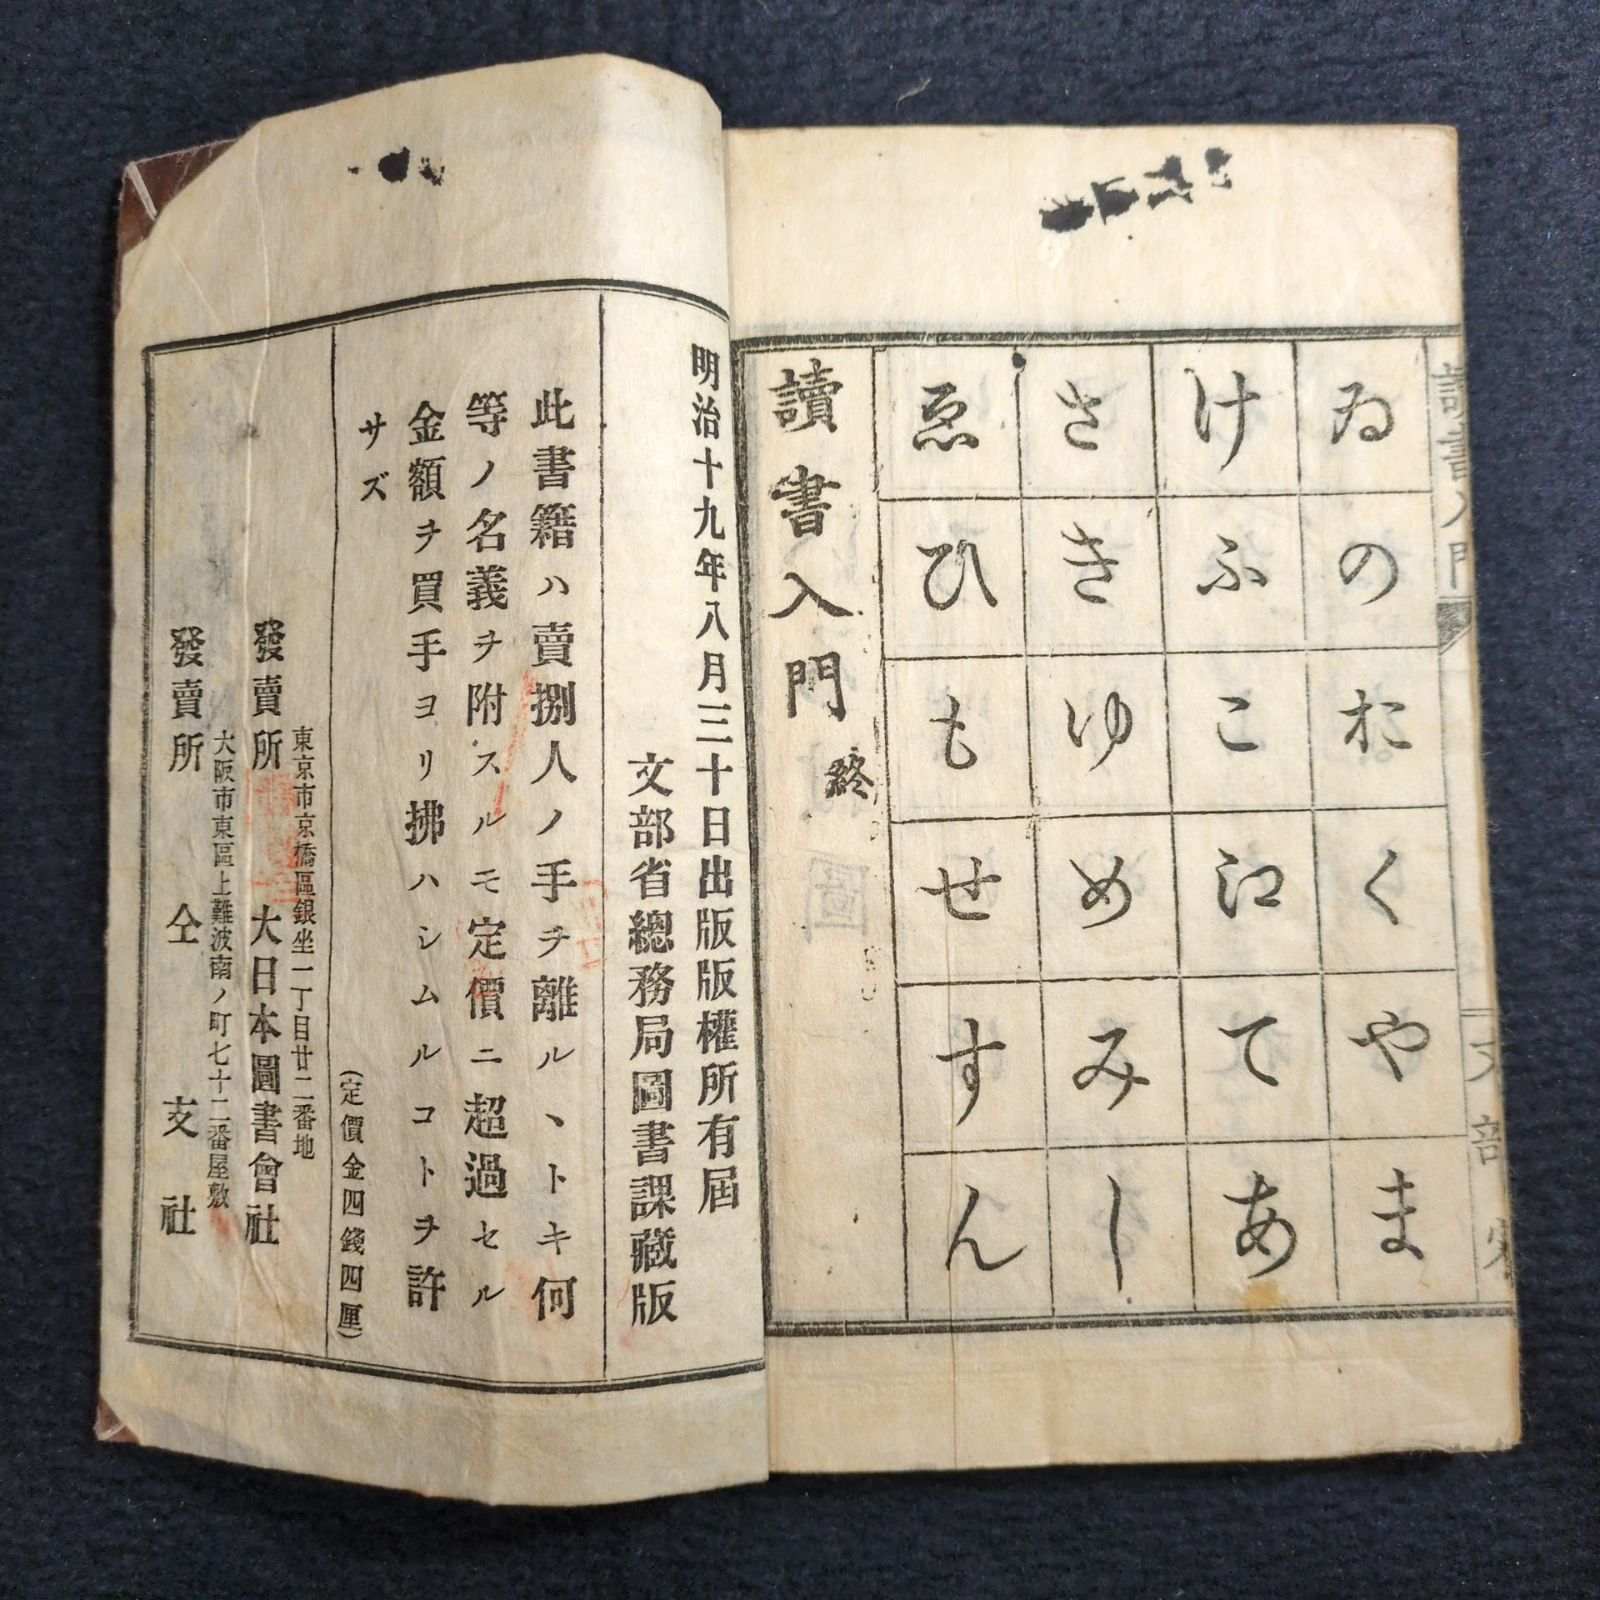 讀書入門
文部省
ゐのおくやま
けふこ江てあ
さきゆめみし
ゑひもせすん
讀書入門 終
明治十九年八月三十日出版版權所有屆
文部省總務局圖書課藏版
此書籍ハ賣捌人ノ手ヲ離ルヽトキ何
等ノ名義ヲ附スルモ定價ニ超過セル
金額ヲ買手ヨリ拂ハシムルコトヲ許
サズ
(定價金四錢四厘)
東京市京橋區銀坐一丁目廿二番地
發賣所 大日本圖書會社
大阪市東區上難波南ノ町七十二番屋敷
發賣所 仝支社